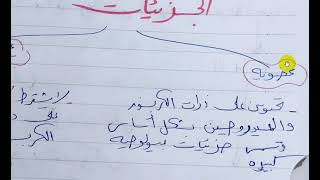 الجزئيات
عضوية
- تحتوي على ذرات الكربون
والهيدروجين بشكل أساسي
وتسمى جزئيات بيولوجية
كبيرة
لا يشترط
على
الكربو